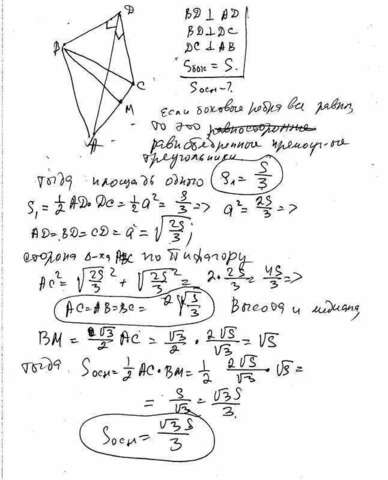 D
B
C
M
A
BD ⊥ AD
BD ⊥ DC
DC ⊥ AB
Sбок = S.
Sосн - ?
Если боковые ребра все равны,
то это равносторонние
равнобедренные прямоуг-ые
треугольники
Тогда площадь одного S₁ = S/3
S₁ = 1/2 AD·DC = 1/2 a² = S/3 => a² = 2S/3 =>
AD = BD = CD = a = √(2S/3);
сторона Δ-ка ABC по Пифагору
AC² = √(2S/3)² + √(2S/3)² = 2·2S/3 = 4S/3 =>
AC = AB = BC = 2√(S/3) Высота и медиана
BM = √3/2 AC = √3/2 · 2√S/√3 = √S
тогда Sосн = 1/2 AC·BM = 1/2 2√S/√3 · √S =
= S/√3 = √3S/3.
Sосн = √3S/3